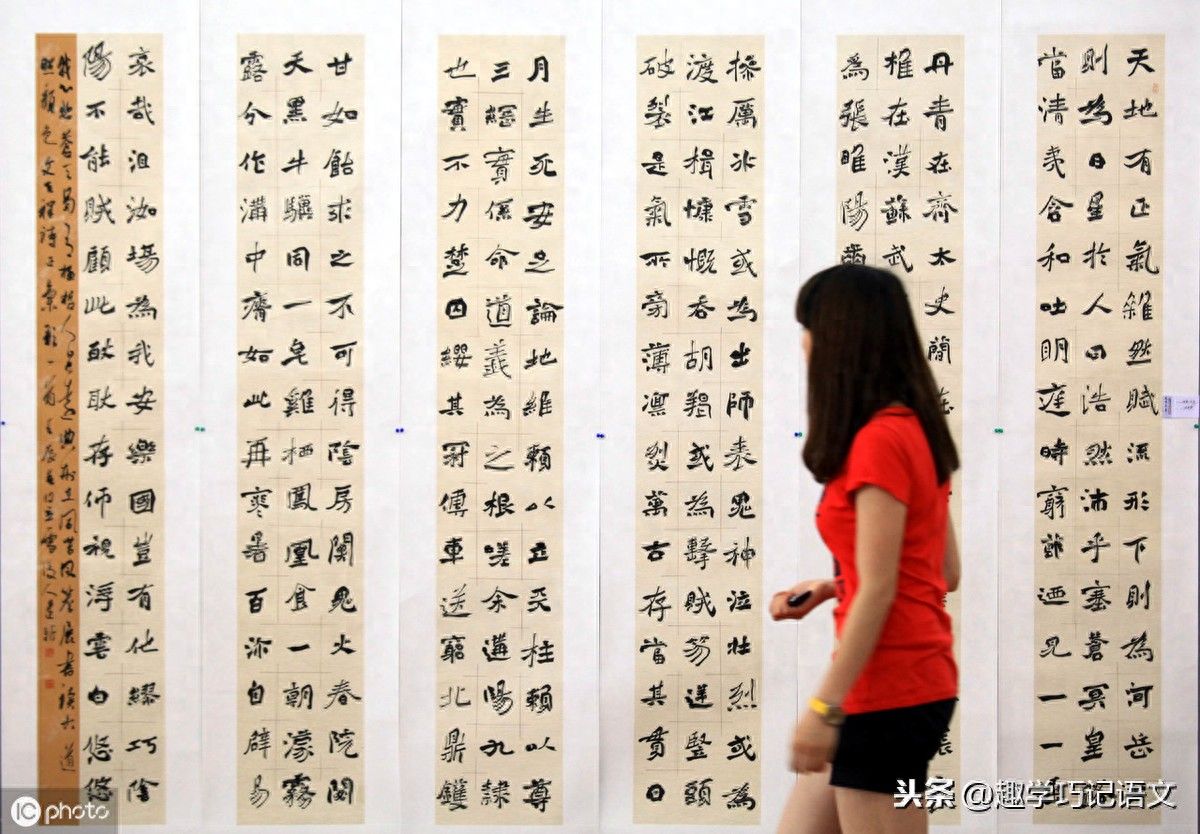 天地有正氣雜然賦流形下則為河岳
則為日星於人曰浩然沛乎塞蒼冥皇
當清夷含和吐明庭時窮節迺見一一
丹青在齊太史簡在
椎在漢蘇武
為張睢陽齒
操厲冰雪或為出師表鬼神泣壯烈或為
渡江楫慷慨吞胡羯或為擊賊笏逆豎頭
破裂是氣所旁薄凛烈萬古存當其貫日
月生死安足論地維賴以立天柱賴以尊
三綱實係命道義為之根嗟余遘陽九隸
也實不力楚囚纓其冠傳車送窮北鼎鑊
甘如飴求之不可得陰房闃鬼火春院閟
天黑牛驥同一皂雞栖鳳凰食一朝濛霧
露分作溝中瘠如此再寒暑百沴自辟易
哀哉沮洳場為我安樂國豈有他繆巧陰
陽不能賊顧此耿耿存仰視浮雲白悠悠
我心悲蒼天曷有極哲人日已遠典刑在夙昔風簷展書讀古道
照顏色 文天祥詩正氣歌一首
IC photo
头条 @趣学巧记语文